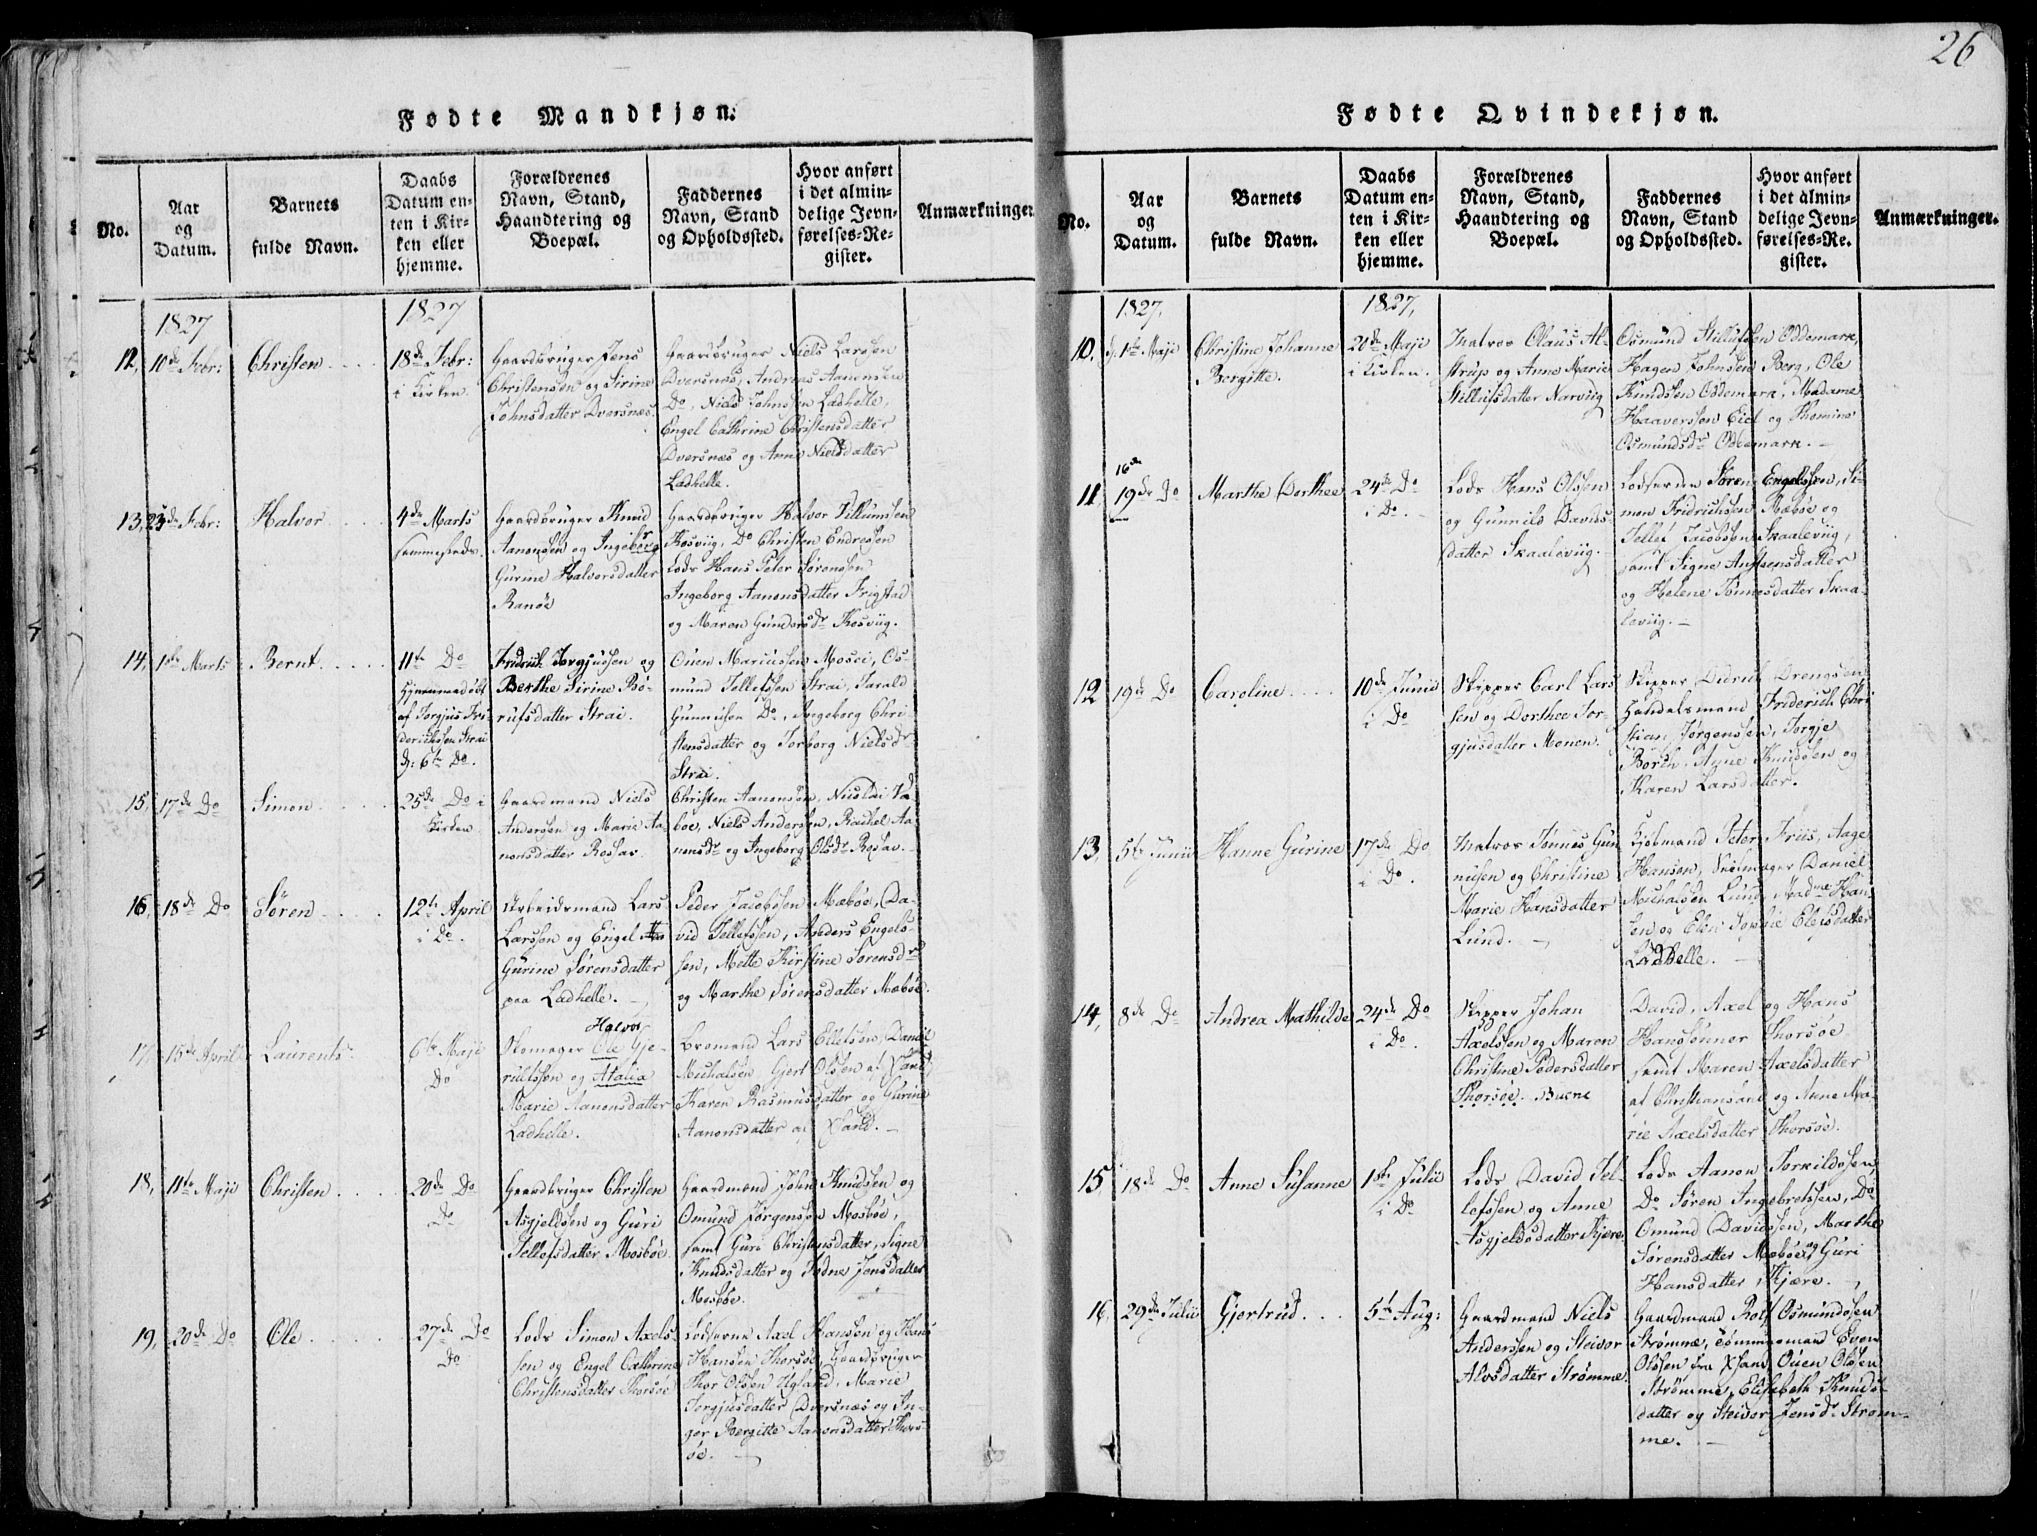 26
Fødte Mandkjøn.
No.
Aar
og
Datum.
Barnets
fulde Navn.
Daabs
Datum en-
ten i Kir-
ken eller
hjemme.
Forældrenes
Navn, Stand,
Haandtering og
Boepæl.
Faddernes
Navn, Stand
og Opholdssted.
Hvor anført
i det almin-
delige Jevn-
førelses-Re-
gister.
Anmærkninger
1827
1827
12, 10de Febr: Christen
18de Febr:
i Kirken.
Gaardbruger Jens
Christensen og Sirine
Johnsdatter Dversnæs.
Gaardbruger Niels Larssen
Dversnæs, Andreas Aanensen
Do, Niels Johnsen Ladhelle,
Engel Cathrine Christensdatter
Dversnæs og Anne Nielsdatter
Ladhelle.
13, 23de Febr: Halvor
4de Marts
sammesteds.
Gaardbruger Knud
Aanonsen og Ingeborg
Gurine Halvorsdatter
Ranöe
Gaardbruger Halvor Villumsen
Kosviig, Do Christen Endresen
Lods Hans Peter Sörensen
Ingeborg Aanonsdatter Frigstad
og Maren Gundersdr Kosviig.
14, 1ste Marts Bernt
11te Do
Hjemmedöbt
af Torgjus Fri-
derichsen Strai
d: 6te Do.
Fridrich Torgjussen og
Berthe Sirine Bö-
rufsdatter Strai.
Ouen Mariussen Mosei, Os-
mund Tellefssen Strai, Tarald
Gunnufsen Do, Ingeborg Chri-
stensdatter og Torborg Nielsdr
Strai.
15, 17de Do Simon
25de Do i
Kirken
Gaardmand Niels
Anderssen og Marie Aa-
nonsdatter Rossav.
Christen Aanonsön, Nicolai Vå-
boe, Niels Andersen, Rachel Aa-
nonsdr og Ingeborg Olsdr Rossav.
16, 18de Do Sören
12te April
i Do.
Arbeidsmand Lars
Larssen og Engel
Gurine Sörensdatter
paa Ladhelle.
Peder Jacobsen Mæböe, Da-
vid Tellefssen, Anders Engels-
sen, Mette Kirstine Sörensdr
og Marthe Sörensdatter Mæböe.
17, 15de April Laurents
6te Maji
Do
Halvor
Skomager Ole Gje-
rulfssen og Atalia
Marie Aanonsdatter
Ladhelle.
Broemand Lars Ellefsen, Daniel
Michalsen, Gjert Olsen af Xsand
Karen Rasmusdatter og Gurine
Aanonsdatter af Xsand.
18, 11te Maji Christen
20de Do
Do
Gaardbruger Christen
Asgjeldsen og Guri
Tellefsdatter Mosböe.
Gaardmand John Knudsen og
Omund Jörgensen Mosböe,
samt Guri Christensdatter, Signe
Knudsdatter og Todne Jensdatter
Mosböe.
19, 20de Do Ole
27de Do
Do
Lods Simon Axels-
sen og Engel Cathrine
Christensdatter Thorsöe
Lodserne Axel Hansen og Hans
Hansen Thorsöe, Gaardbruger
Thor Olsen Ugland, Marie
Torgjusdatter Dversnæs og In-
ger Bergitte Aanonsdatter Thors-
öe.
Fødte Qvindekjøn.
No.
Aar
og
Datum.
Barnets
fulde Navn.
Daabs
Datum en-
ten i Kir-
ken eller
hjemme.
Forældrenes
Navn, Stand,
Haandtering og
Boepæl.
Faddernes
Navn, Stand
og Opholdssted.
Hvor anført
i det almin-
delige Jevn-
førelses-Re-
gister.
Anmærkninger.
1827,
1827,
10, d. 1ste Maji Christine Johanne
Bergitte.
20de Maji
i Kirken.
Matros Olaus Al-
strup og Anne Marie
Stillufsdatter Narviig
Osmund Stillufsen Oddemark,
Hagen Johnsen Berg, Ole
Knudsen Oddemark, Madame
Haaverssen Eiel og Thomine
Osmundsdr Oddemark.
16de
11, 19de Do Marthe Dorthee
24de Do
i Do.
Lods Hans Olssen
og Gunnild Davids-
datter Skaaleviig.
Lodserne Sören Engelssen, Si-
mon Fridrichsen Mæböe og
Tellef Jacobsen Skaaleviig,
samt Signe Anstensdatter
og Helene Tönnesdatter Skaa-
leviig.
12 19de Do Caroline
10de Junii
i Do
Skipper Carl Lars
sen og Dorthee Tor-
gjusdatter Monen.
Skipper Didrik Drengsen,
Handelsmand Friderich Chri
stian Jörgenssen, Torgje
Borch, Anne Knudsen og
Karen Larsdatter.
13, 5te Junii Hanne Gurine
17de Do
i Do.
Matros Tönnes Gun
nufsen og Christine
Marie Hansdatter
Lund.
Kjöbmand Peter Friis, Aage
Hansen, Skomager Daniel
Michalsen Lund, Madme Han
sen og Elen Sophie Elefsdatter
Ladhelle.
14, 8de Do Andrea Mathilde
24de Do
i Do.
Skipper Johan
Axelssen og Maren
Christine Pedersdatter
Thorsöe. Buene
David, Axel og Hans
Hanssönner Thorsöe
samt Maren Axelsdatter
af Christiansand og Anne Ma-
rie Axelsdatter Thorsöe.
15, 18de Do Anne Susanne
1ste Julii
i Do
Lods David Tel-
lefssen og Anne
Asgjeldsdatter Kjære.
Lods Aanon Torkildssen,
Do Sören Ingebretssen, Do
Omund Davidssen, Marthe
Sörensdatter Mæböe, og Guri
Hansdatter Kjære.
16, 29de Julii Gjertrud.
5te Aug:
Gaardmand Niels
Anderssen og Steivor
Alvsdatter Strömme
Gaardmand Rolf Osmundssen
Strömme, Tömmermand Even
Olssen fra Xsand, Ouen Olssen
Strömme, Elisabeth Knuds-
datter og Steivor Jensdr Ström-
me.